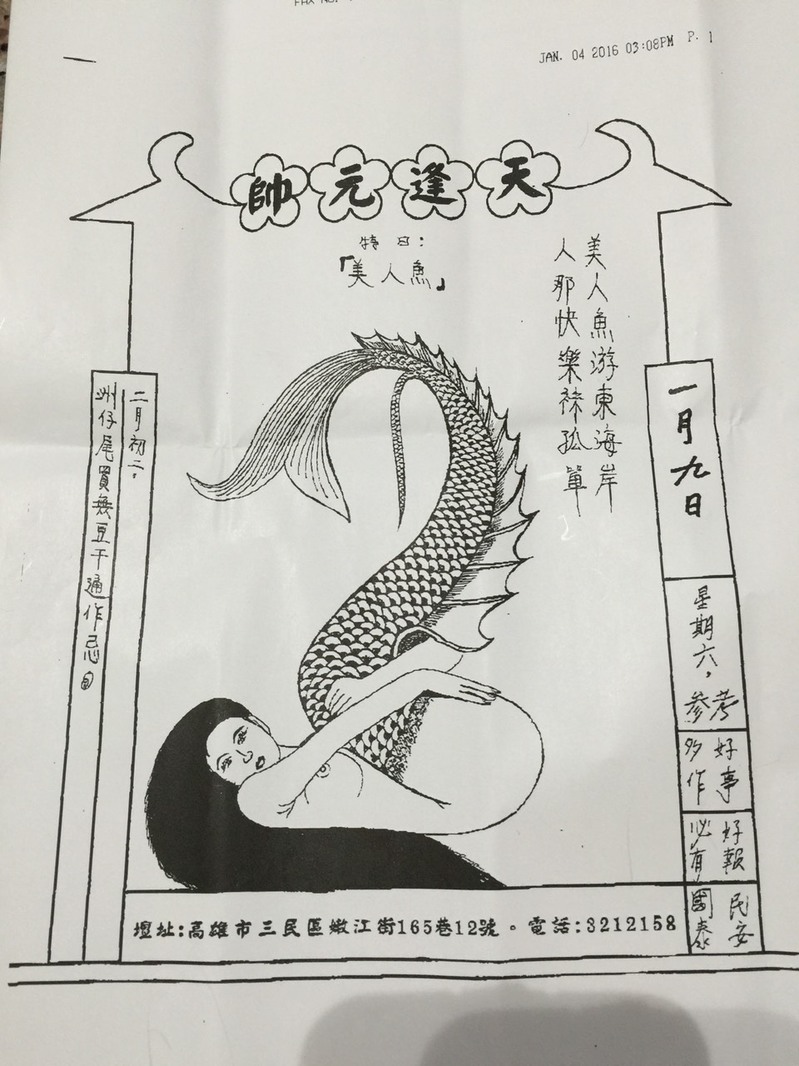 JAN. 04 2016 03:08PM P. 1
天逢元帥
特日:
「美人魚」
美人魚游東海岸
人那快樂袜孤單
一月九日
星期六,
參考
好事
多作
好報
必有
民安
國泰
二月初二。
洲仔尾買無豆干通作忌
壇址:高雄市三民區嫩江街165巷12號。電話:3212158